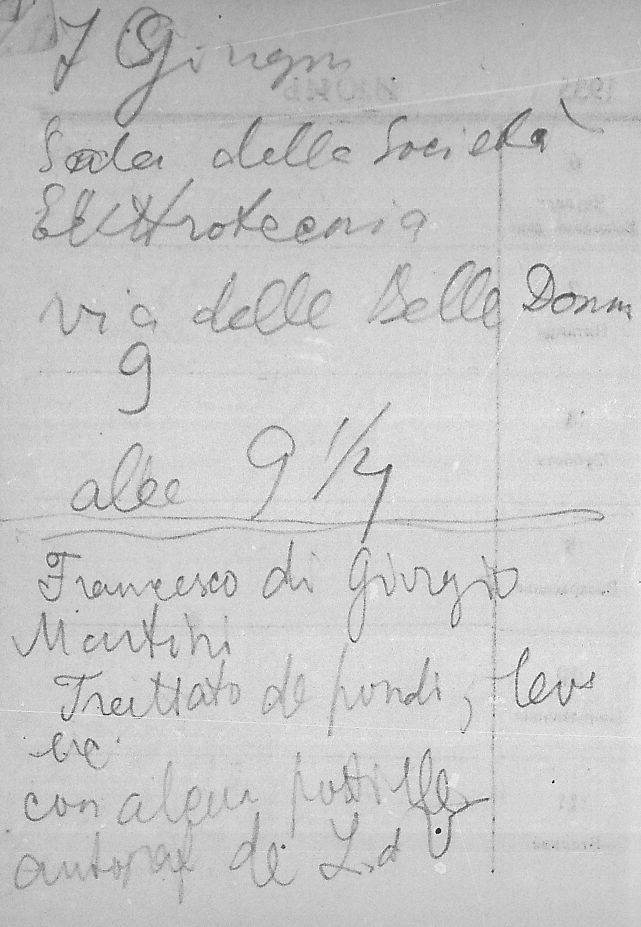 7 Giugn
Sede della Società
Elettrotecnia
via delle Belle Donn
9
alle 9 1/4
Francesco di Giorgio
Martini
Trattato de pondi, leve
etc.
con alcun postille
autograf de L. d V